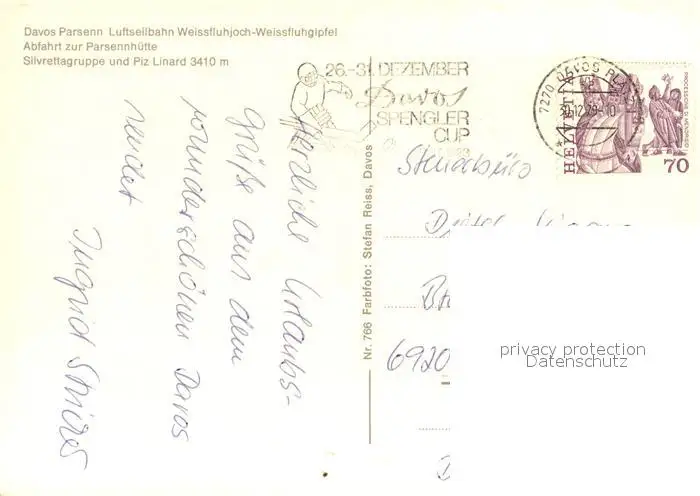 Davos Parsenn Luftseilbahn Weissfluhjoch-Weissfluhgipfel
Abfahrt zur Parsennhütte
Silvrettagruppe und Piz Linard 3410 m
26.-31. DEZEMBER
Davos
SPENGLER
CUP
7270 DAVOS PLATZ
30.12.79-10
HELVETIA
70
Herzliche Urlaubs-
grüße aus dem
wunderschönen Davos
sendet
Ingrid
Nr. 766 Farbfoto: Stefan Reiss, Davos
Steuerbüro
6920
privacy protection
Datenschutz